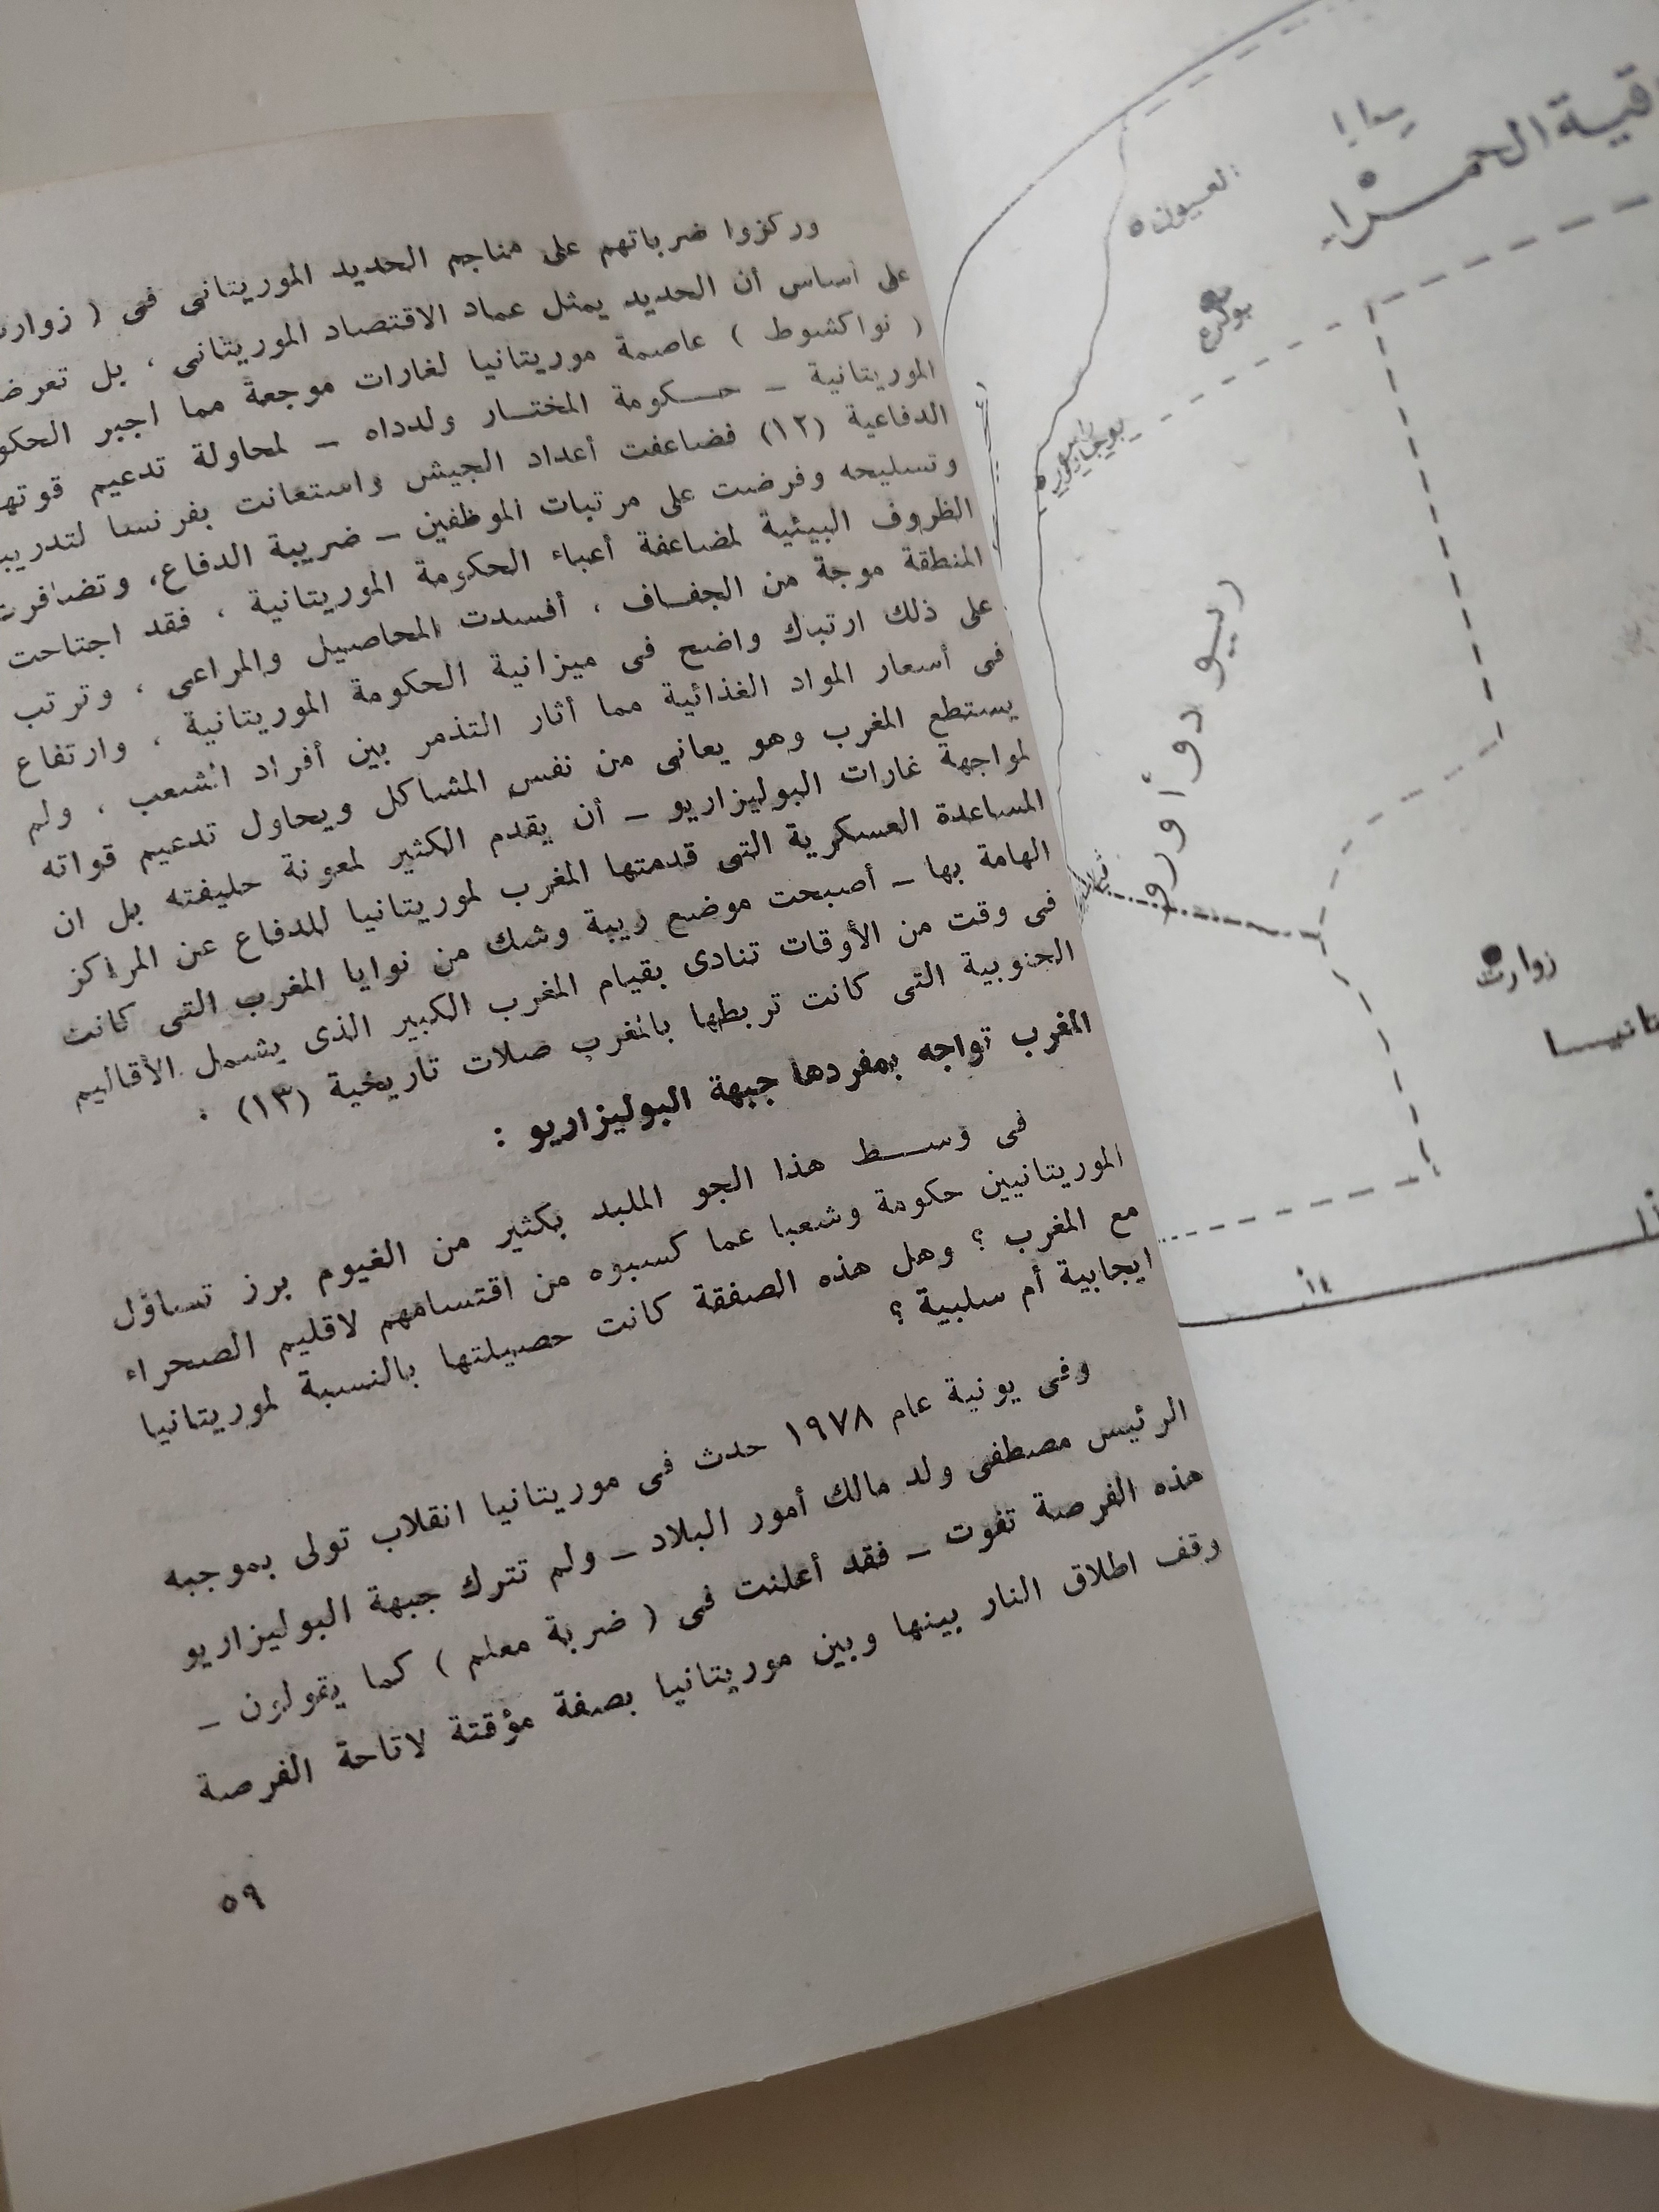 قية الحمراء
العيون
بوكراع
بوجادور
ريو دو أورو
زوارت
تانيا
وركزوا ضرباتهم على مناجم الحديد الموريتانى فى ( زوارت
على أساس أن الحديد يمثل عماد الاقتصاد الموريتانى ، بل تعرض
( نواكشوط ) عاصمة موريتانيا لغارات موجعة مما اجبر الحكو
الموريتانية – حكومة المختار ولدداه – لمحاولة تدعيم قوته
الدفاعية (١٢) فضاعفت أعداد الجيش واستعانت بفرنسا لتدريب
وتسليحه وفرضت على مرتبات الموظفين – ضريبة الدفاع، وتضافرت
الظروف البيئية لمضاعفة أعباء الحكومة الموريتانية ، فقد اجتاحت
المنطقة موجة من الجفاف ، أفسدت المحاصيل والمراعى ، وترتب
على ذلك ارتباك واضح فى ميزانية الحكومة الموريتانية ، وارتفاع
فى أسعار المواد الغذائية مما أثار التذمر بين أفراد الشعب ، ولم
يستطع المغرب وهو يعانى من نفس المشاكل ويحاول تدعيم قواته
لمواجهة غارات البوليزاريو – أن يقدم الكثير لمعونة حليفته بل ان
المساعدة العسكرية التى قدمتها المغرب لموريتانيا للدفاع عن المراكز
الهامة بها – أصبحت موضع ريبة وشك من نوايا المغرب التى كانت
فى وقت من الأوقات تنادى بقيام المغرب الكبير الذى يشمل الأقاليم
الجنوبية التى كانت تربطها بالمغرب صلات تاريخية (١٣) .
المغرب تواجه بمفردها جبهة البوليزاريو :
فى وسط هذا الجو الملبد بكثير من الغيوم برز تساؤل
الموريتانيين حكومة وشعبا عما كسبوه من اقتسامهم لاقليم الصحراء
مع المغرب ؟ وهل هذه الصفقة كانت حصيلتها بالنسبة لموريتانيا
ايجابية أم سلبية ؟
وفى يونية عام ١٩٧٨ حدث فى موريتانيا انقلاب تولى بموجبه
الرئيس مصطفى ولد مالك أمور البلاد – ولم تترك جبهة البوليزاريو
هذه الفرصة تفوت – فقد أعلنت فى ( ضربة معلم ) كما يقولون –
وقف اطلاق النار بينها وبين موريتانيا بصفة مؤقتة لاتاحة الفرصة
٥٩